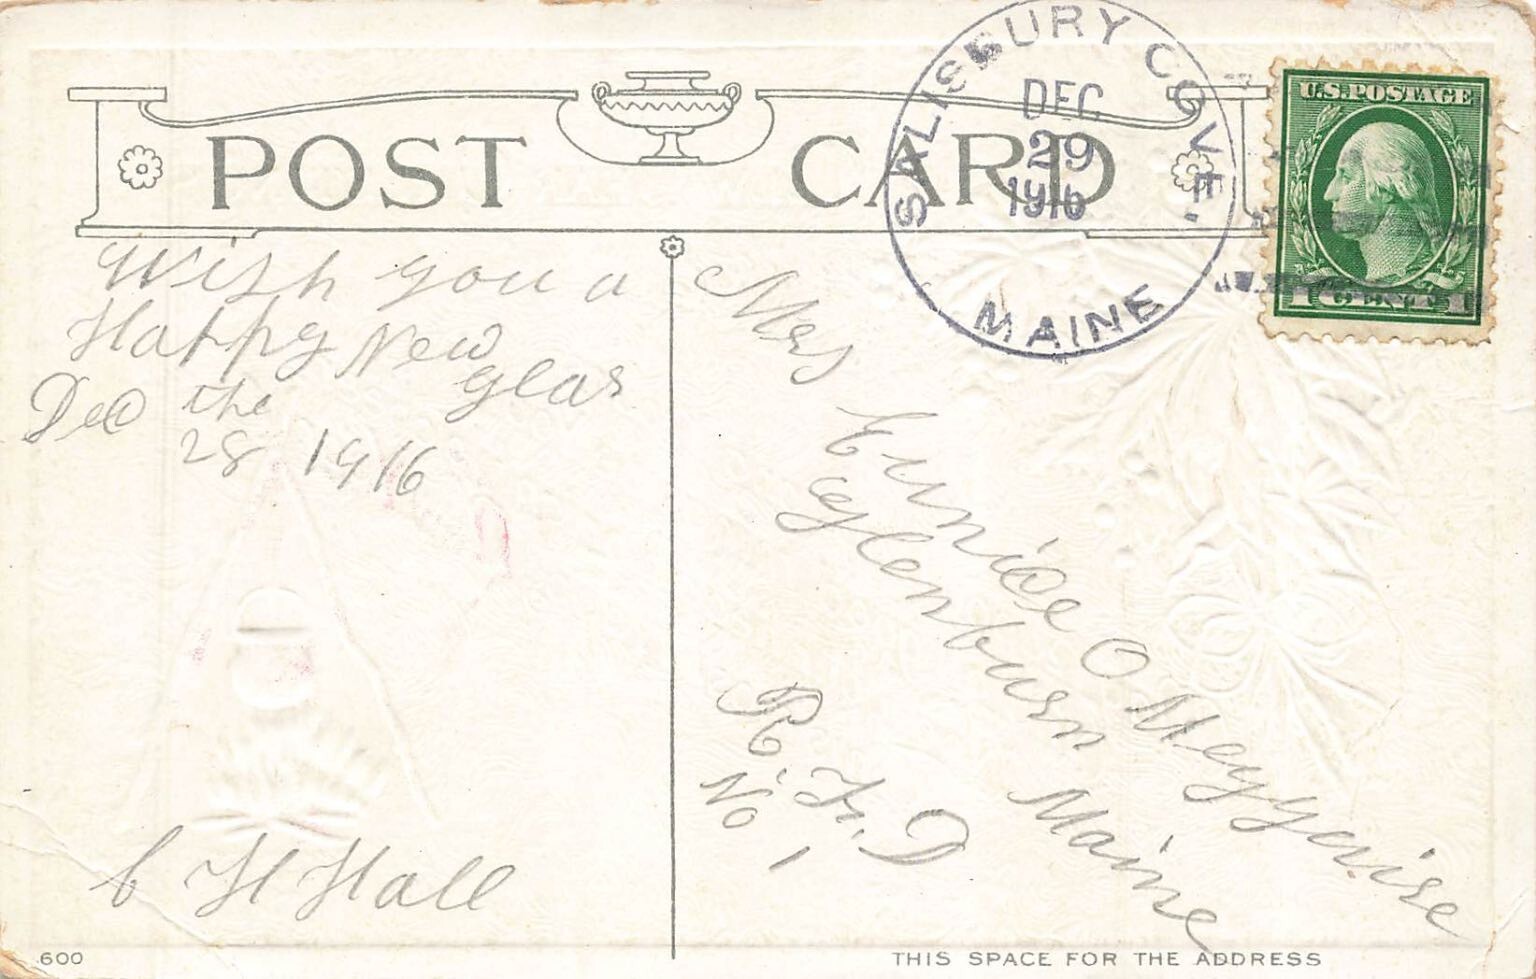 POST CARD
SALISBURY COVE.
DEC
29
1916
MAINE
U.S. POSTAGE
1 CENT 1
Wish you a
Happy New
year
Dec the
28 1916
C H Hall
Mrs
Eunice O
Glenburn Maine
R.F.D
No 1
600
THIS SPACE FOR THE ADDRESS